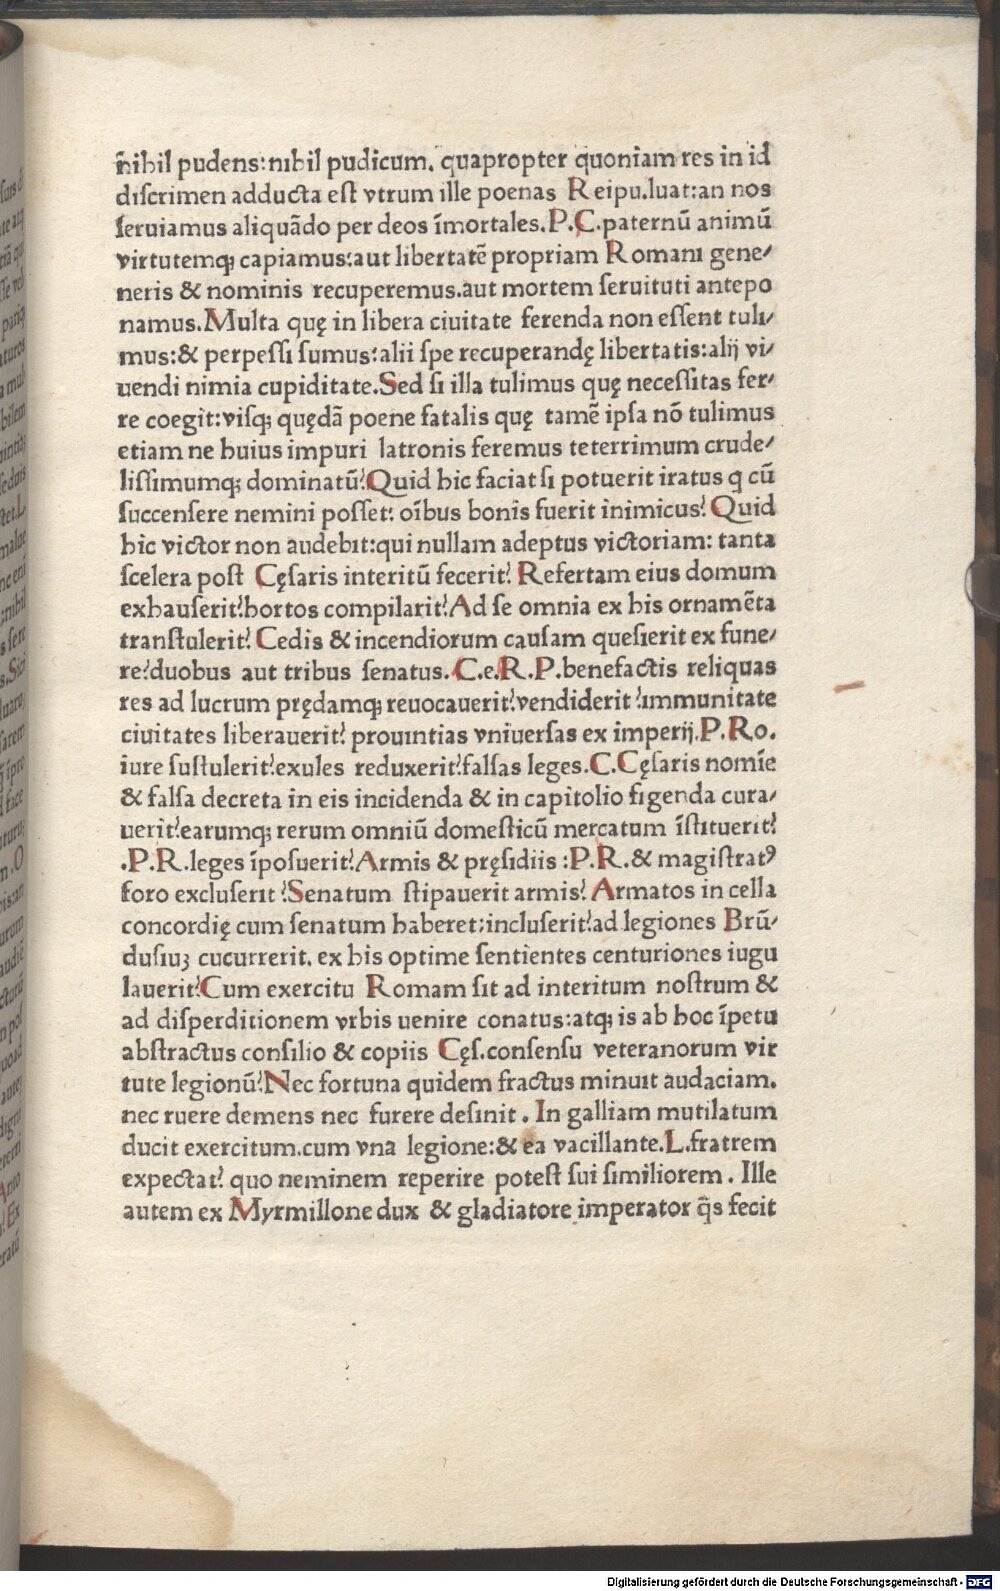 n̄ihil pudens:nihil pudicum. quapropter quoniam res in id
discrimen adducta est vtrum ille poenas Reipu.luat:an nos
seruiamus aliquādo per deos īmortales.P.C.paternū animū
virtutemq; capiamus:aut libertatē propriam Romani gene/
neris & nominis recuperemus.aut mortem seruituti antepo
namus.Multa quę in libera ciuitate ferenda non essent tuli/
mus:& perpessi sumus:alii spe recuperandę libertatis:alij vi/
uendi nimia cupiditate.Sed si illa tulimus quę necessitas fer/
re coegit:visq; quędā poene fatalis quę tamē ipsa nō tulimus
etiam ne huius impuri latronis feremus teterrimum crude/
lissimumq; dominatū?Quid hic faciat si potuerit iratus q cū
succensere nemini posset: oībus bonis fuerit inimicus? Quid
hic victor non audebit:qui nullam adeptus victoriam: tanta
scelera post Cęsaris interitū fecerit? Refertam eius domum
exhauserit?hortos compilarit?Ad se omnia ex his ornamēta
transtulerit? Cedis & incendiorum causam quesierit ex fune/
re?duobus aut tribus senatus.C.e.R.P.benefactis reliquas
res ad lucrum prędamq; reuocauerit?vendiderit?immunitate
ciuitates liberauerit? prouintias vniuersas ex imperij.P.Ro.
iure sustulerit?exules reduxerit?falsas leges.C.Cęsaris nomīe
& falsa decreta in eis incidenda & in capitolio figenda cura/
uerit?earumq; rerum omniū domesticū mercatum īstituerit?
.P.R.leges īposuerit?Armis & pręsidiis :P.R.& magistratꝰ
foro excluserit?Senatum stipauerit armis? Armatos in cella
concordię cum senatum haberet;incluserit?ad legiones Brū/
dusiuꝫ cucurrerit. ex his optime sentientes centuriones iugu
lauerit?Cum exercitu Romam sit ad interitum nostrum &
ad disperditionem vrbis uenire conatus:atq; is ab hoc īpetu
abstractus consilio & copiis Cęs.consensu veteranorum vir
tute legionū?Nec fortuna quidem fractus minuit audaciam.
nec ruere demens nec furere desinit. In galliam mutilatum
ducit exercitum.cum vna legione:& ea vacillante.L.fratrem
expectat? quo neminem reperire potest sui similiorem. Ille
autem ex Myrmillone dux & gladiatore imperator q̄s fecit
Digitalisierung gefördert durch die Deutsche Forschungsgemeinschaft - DFG